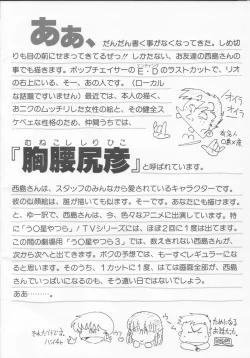 ああ、
だんだん書く事がなくなってきた。しめ切
りも目の前にせまってきてるぜっ!! しかたない、お友達の西島さんの
事でも書きます。ポップチェイサーのE・Dのラストカットで、リオ
の右上にいる、そー、あの人です。(ローカル
な話題ですいません) 最近では、本人の描く、
おニクのムッチリした女性の絵と、その健全ス
ケベェな性格のため、仲間うちでは、
『胸腰尻彦』と呼ばれています。
むねこししりひこ
西島さんは、スタッフのみんなから愛されているキャラクターです。
彼の似顔絵は、誰が描いても似ます。そーです。あなたにも描けます。
と、ゆー訳で、西島さんは、今、色々なアニメに出演しています。特
に「う〇星やつら」TVシリーズには、ほぼ2回に1度は出てます。
この間の劇場用「う〇星やつら3」では、数えきれない西島さんが、
次から次へと出てきます。ボクの予想では、もーすぐレギュラーにな
ると思います。そのうち、1カットに1度、はては画面全部が、西島
さんでいっぱいになるのも、そう遠い日ではないでしょう。
ああ………。